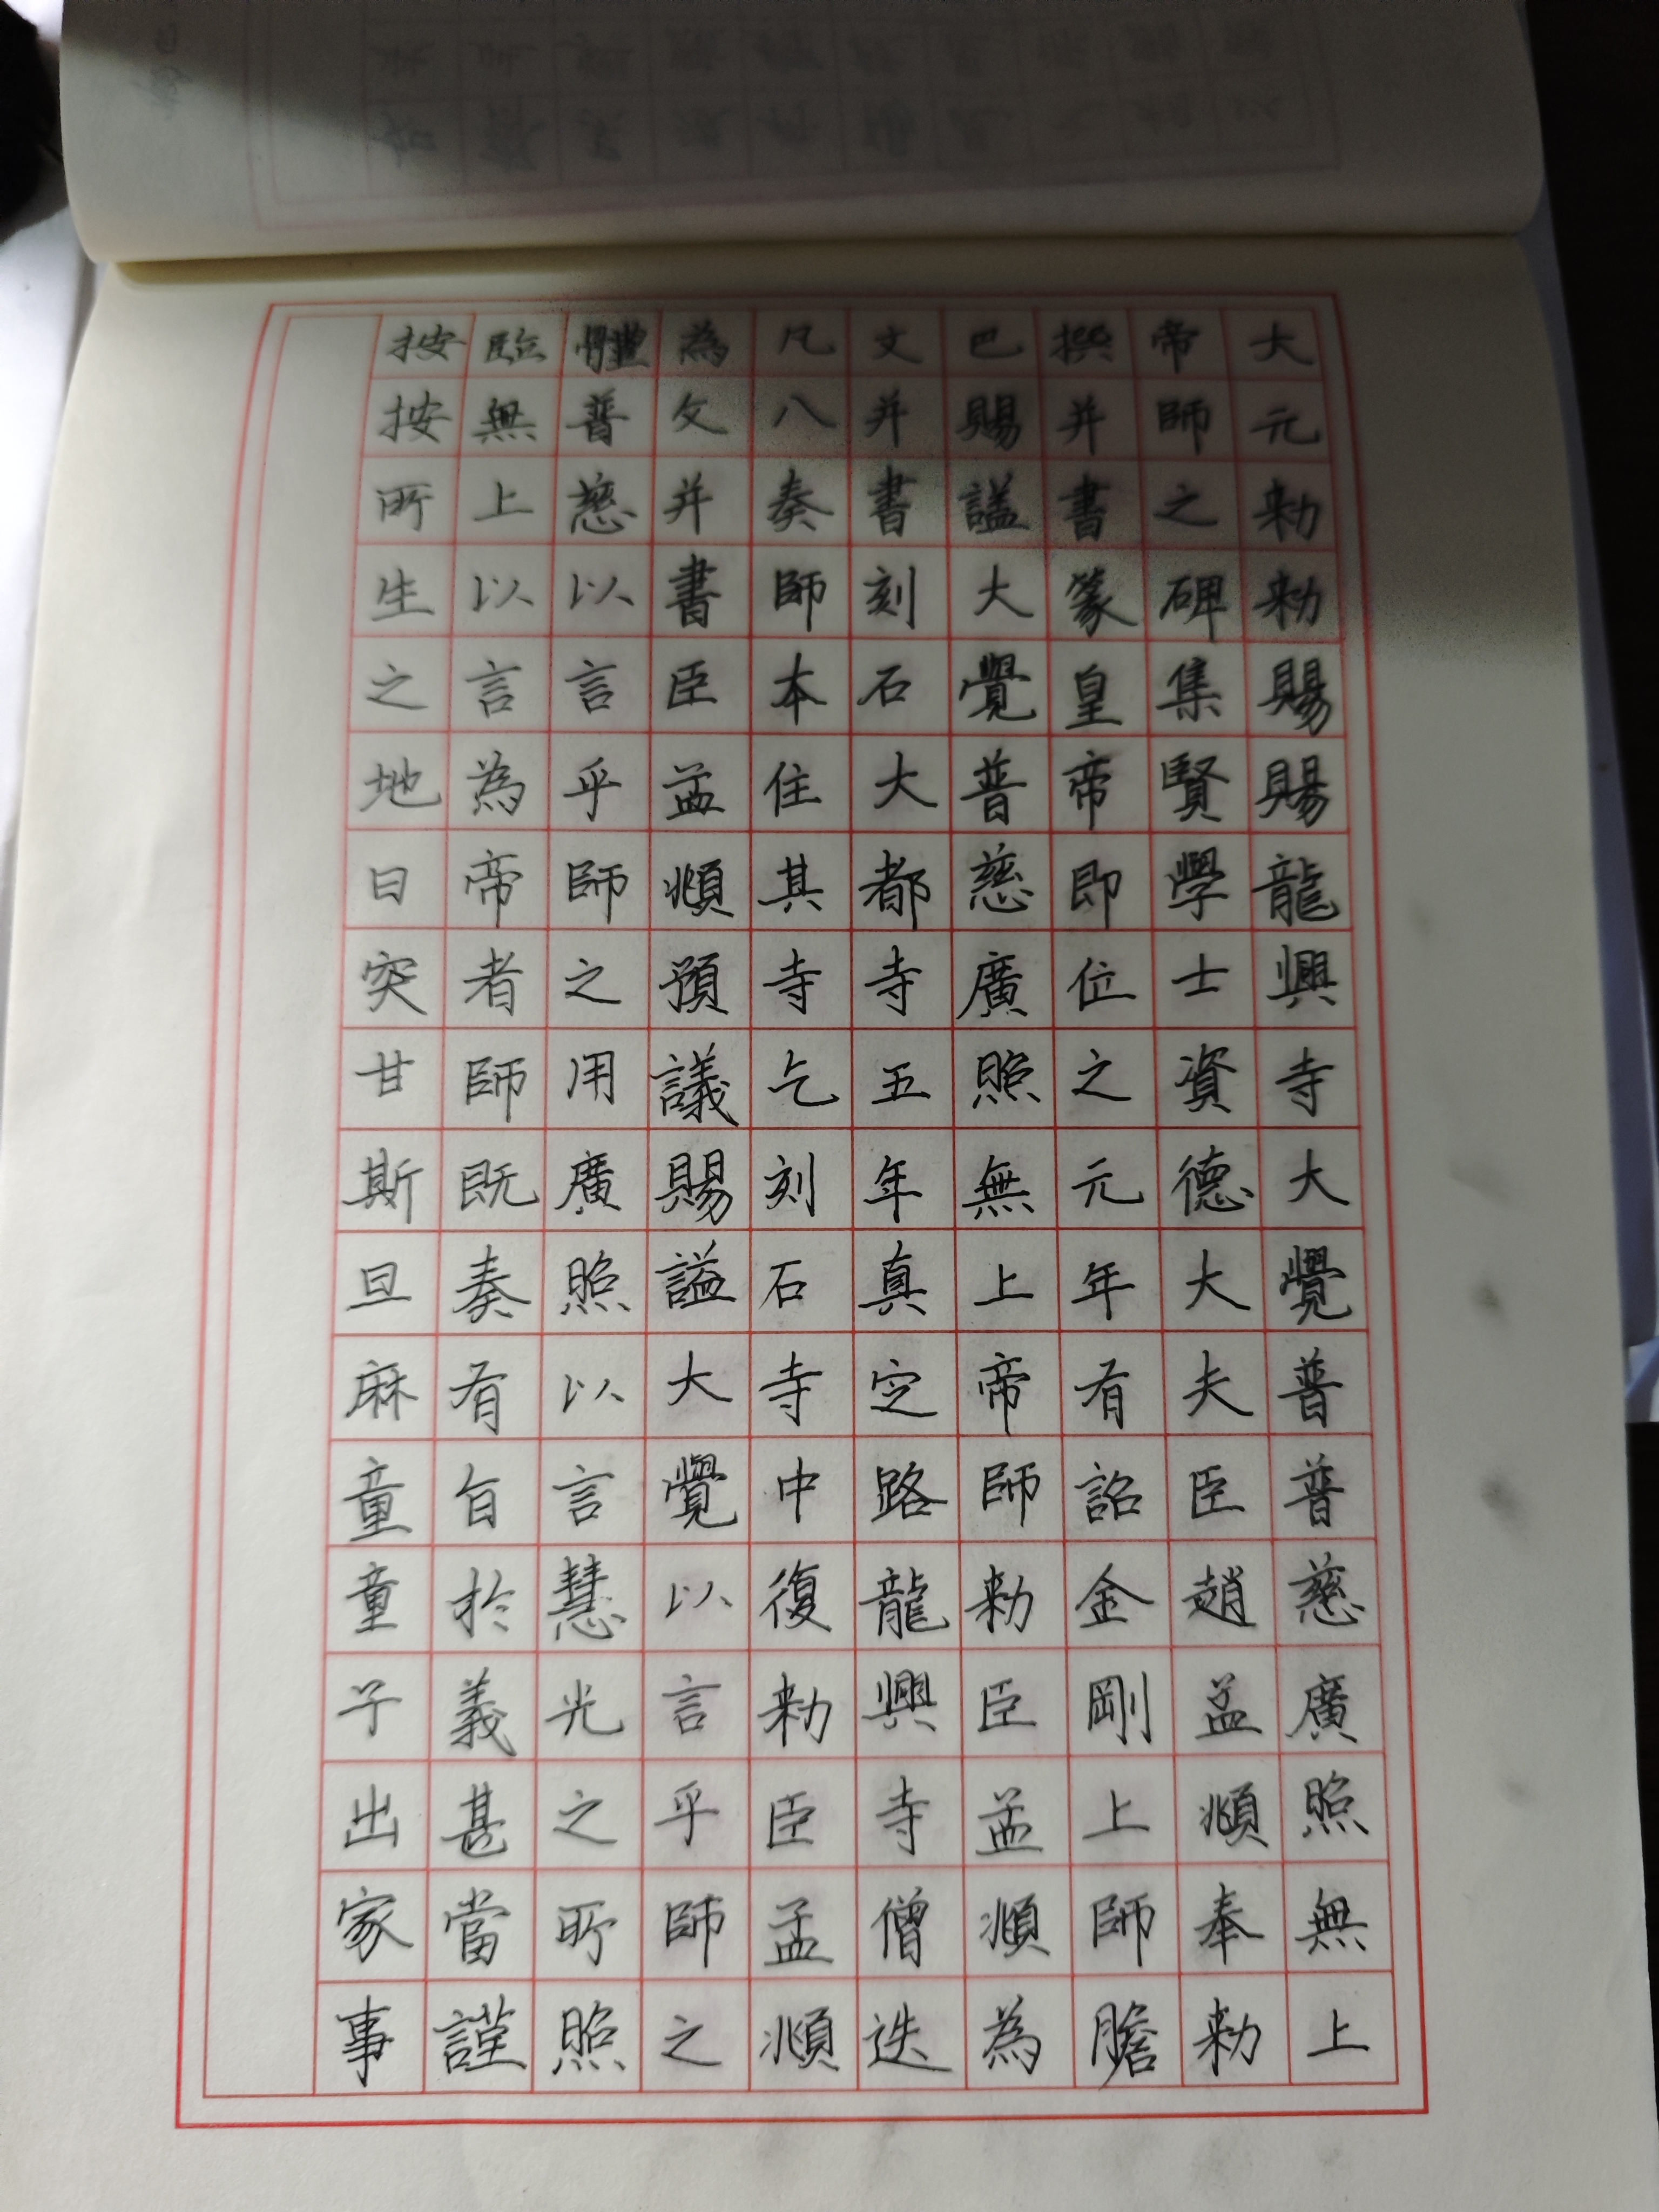 大元勅勅賜賜龍興寺大覺普普慈廣照無上
帝師之碑集賢學士資德大夫臣趙孟頫奉勅
撰并書篆皇帝即位之元年有詔金剛上師膽
巴賜諡大覺普慈廣照無上帝師勅臣孟頫為
文并書刻石大都寺五年真定路龍興寺僧迭
凡八奏師本住其寺乞刻石寺中復勅臣孟頫
為文并書臣孟頫預議賜諡大覺以言乎師之
體普慈以言乎師之用廣照以言慧光之所照
臨無上以言為帝者師既奏有旨於義甚當謹
按按所生之地曰突甘斯旦麻童童子出家事